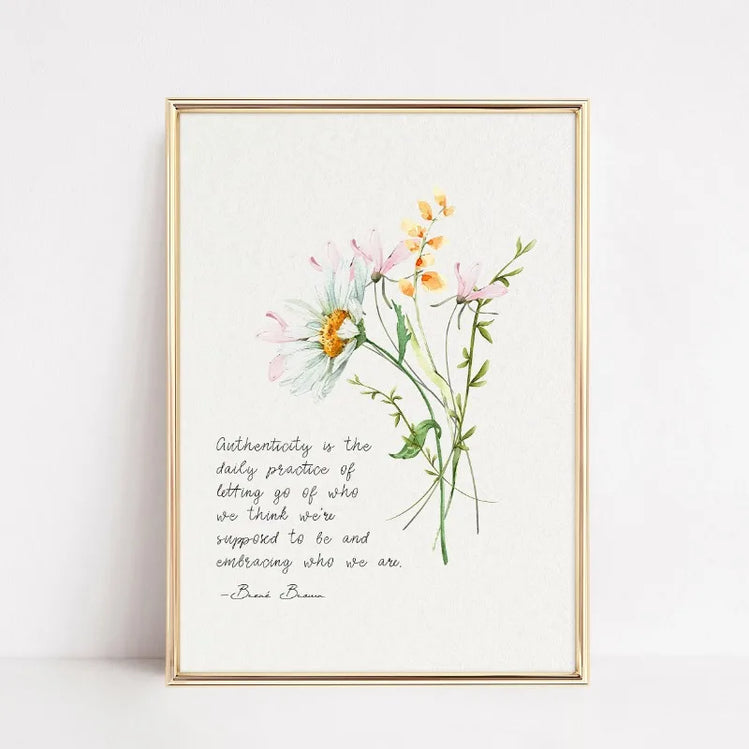 Authenticity is the
daily practice of
letting go of who
we think we're
supposed to be and
embracing who we are.
—Brené Brown